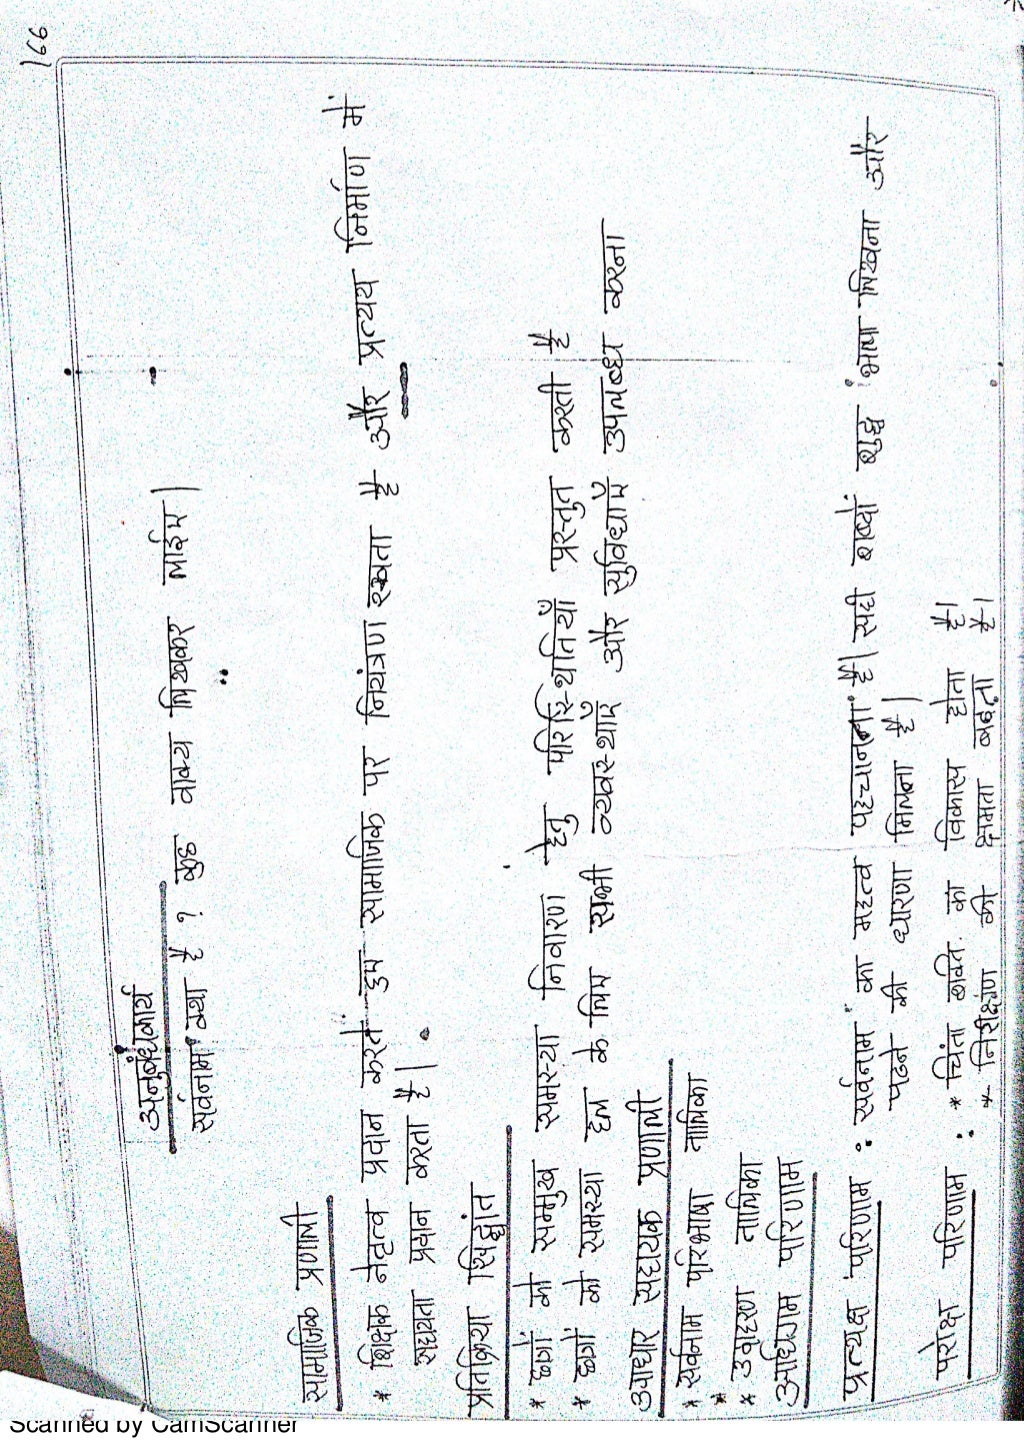 166
अनुबंधकार्य
सर्वनाम क्या है ? कुछ वाक्य लिखकर लाईए |
सामाजिक प्रणाली
* शिक्षक नेतृत्व प्रदान करते हुए सामाजिक पर नियंत्रण रखता है और प्रत्यय निर्माण में
सहायता प्रदान करता है |
प्रतिक्रिया सिद्धांत
* छात्रों को सम्मुख समस्या निवारण हेतु परिस्थितियाँ प्रस्तुत करती है
* छात्रों को समस्या हल के लिए सभी व्यवस्थाएँ और सुविधाएँ उपलब्ध करना
आधार सहायक प्रणाली
* सर्वनाम परिभाषा तालिका
* उदाहरण तालिका
अधिगम परिणाम
प्रत्यक्ष परिणाम : सर्वनाम का महत्व पहचानना है | सही वाक्यों शुद्ध भाषा लिखना और
पढने की धारणा मिलना है |
परोक्ष परिणाम : * चिंता शक्ति का विकास होता है |
* निरीक्षण की क्षमता बढ़ता है |
Scanned by CamScanner